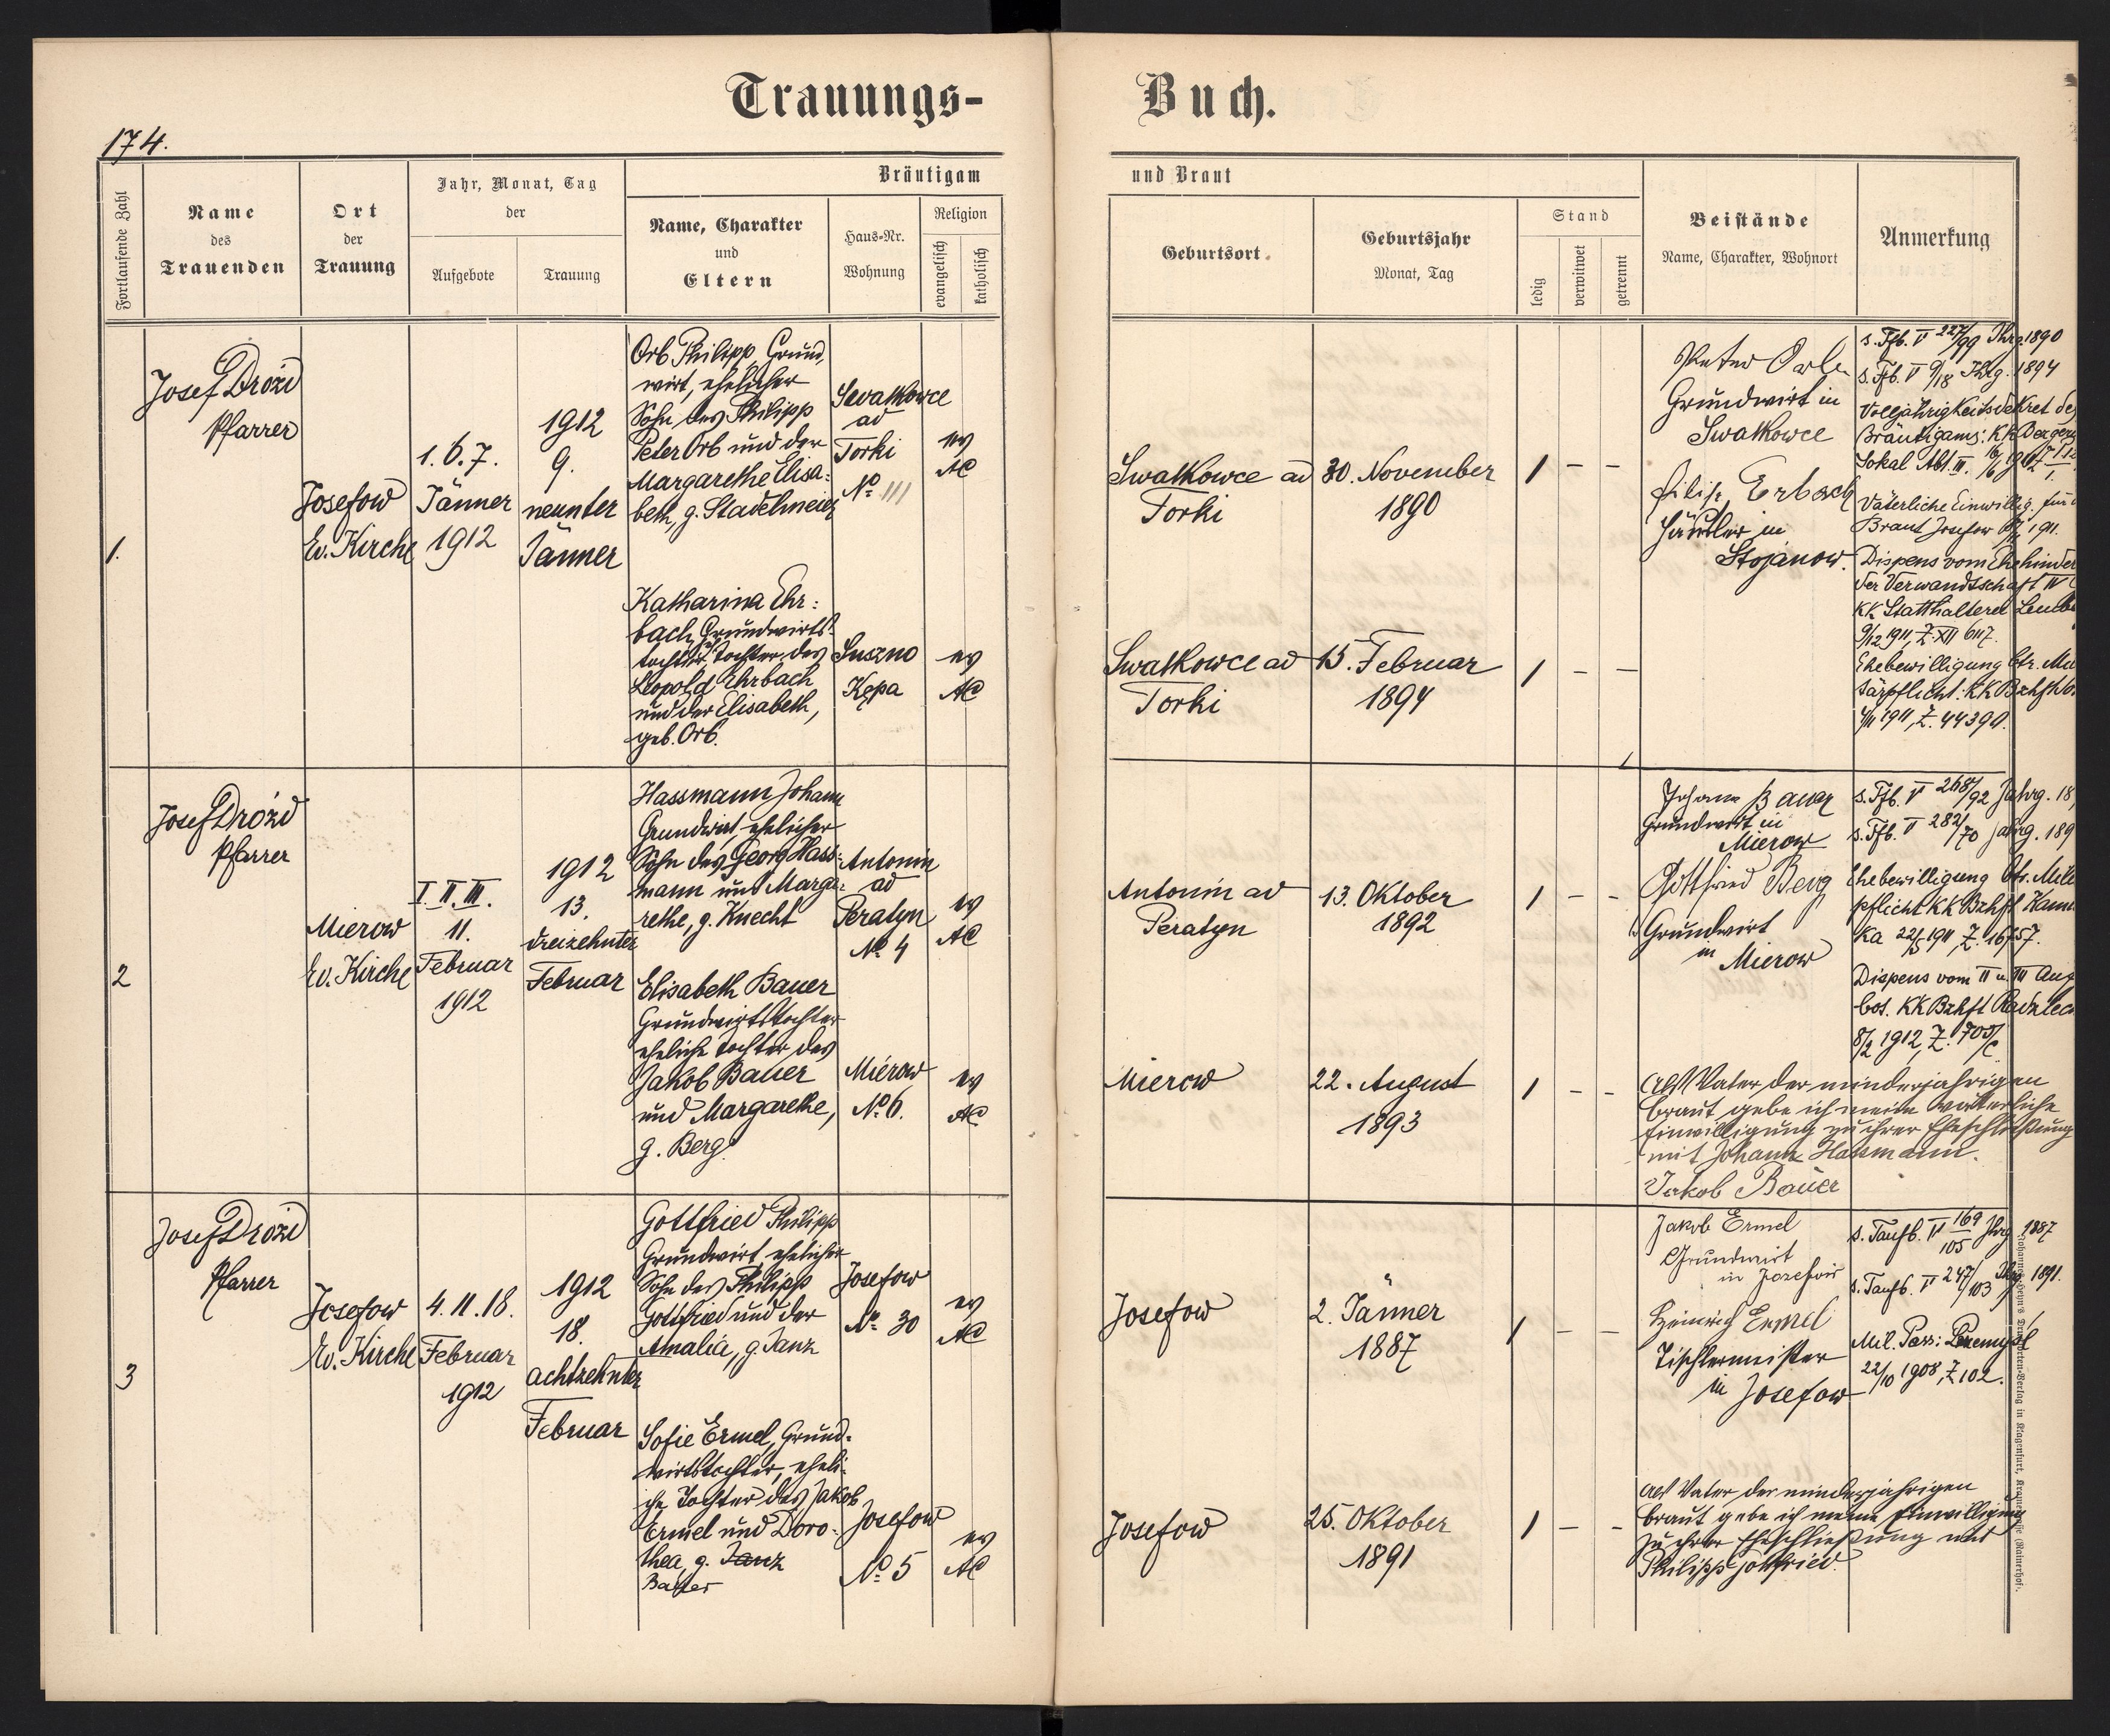 Trauungs-
Buch.
174.
Fortlaufende Zahl
Name
des
Trauenden
Ort
der
Trauung
Jahr, Monat, Tag
der
Aufgebote
Trauung
Bräutigam
Name, Charakter
und
Eltern
Haus-Nr.
Wohnung
Religion
evangelisch
katholisch
und Braut
Geburtsort.
Geburtsjahr
Monat, Tag
Stand
ledig
verwitwet
getrennt
Beistände
Name, Charakter, Wohnort
Anmerkung
1.
Josef Drózd
Pfarrer
Josefow
Ev. Kirche
1. 6. 7.
Jänner
1912
1912
9.
neunter
Jänner
Orb Philipp, Grund,
wirt, ehelicher
Sohn des Philipp
Peter Orb und der
Margarethe Elisa:
beth, g. Stadelmeier
Swatkowce
ad
Torki
No III
ev
AC
Katharina Ehr:
bach, Grundwirts
tochter, Tochter des
Leopold Ehrbach
und der Elisabeth,
geb. Orb.
Suszno
Kępa
ev
AC
Swatkowce ad
Torki
30. November
1890
1 – –
Swatkowce ad
Torki
15. Februar
1894
1 – –
Peter
Grundwirt in
Swatkowce
Filip Erbach
Häusler in
Stojanow.
s. Tfb. V 227/99 Jhrg. 1890
s. Tfb. V 9/18 Jhrg. 1894
Volljährigkeitsdekret des
Bräutigams: KK
Sokal Abt. III.
Väterliche Einwillig. für
Braut Josefow 1911.
Dispens vom Ehehinder
der Verwandtschaft IV
KK Statthalterei Lemb
9/12 1911, Z. XII 6117.
Ehebewilligung btr. Mi
tärpflicht: KK Bzhft
4/11 1911, Z. 44390.
2
Josef Drózd
Pfarrer
Mierow
Ev. Kirche
I. II. III.
11.
Februar
1912
1912
13.
dreizehnter
Februar
Hassmann Johann
Grundwirt, ehelicher
Sohn des Georg Hass-
mann und Marga-
rethe, g. Knecht
Antonin
ad
Peratyn
No 4
ev
AC
Elisabeth Bauer
Grundwirtstochter
eheliche Tochter des
Jakob Bauer
und Margarethe,
g. Berg
Mierow
No 6.
ev
AC
Antonin ad
Peratyn
13. Oktober
1892
1 – –
Mierow
22. August
1893
1 – –
Johann Bauer
Grundwirt in
Mierow
Gottfried Berg
Grundwirt
in Mierow
s. Tfb. V 268/92 Jahrg. 18
s. Tfb. V 282/70 Jahrg. 189
Ehebewilligung btr. Mili
pflicht KK Bzhft Kam.
ka 22/5 1911, Z. 16757.
Dispens vom II u. III Aug
bot. KK Bzhft Radziec
8/2 1912, Z. 705/c
Als Vater der minderjahrigen
Braut gebe ich meine väterliche
Einwilligung zu ihrer Eheschließung
mit Johann Hassmann.
Jakob Bauer
3
Josef Drózd
Pfarrer
Josefow
Ev. Kirche
4. 11. 18.
Februar
1912
1912
18.
achtzehnter
Februar
Gottfried Philipp
Grundwirt, ehelicher
Sohn des Philipp
Gottfried und der
Amalia, g. Janz
Josefow
No 30
ev
AC
Sofie Ermel, Grund-
wirtstochter, eheli-
che Tochter des Jakob
Ermel und Doro-
thea, g. Janz
Bauer
Josefow
No 5
ev
AC
Josefow
2. Jänner
1887
1 – –
Josefow
25. Oktober
1891
1 – –
Jakob Ermel
Grundwirt
in Josefow
Heinrich Ermel
Tischlermeister
in Josefow
s. Taufb. V 169/105 Jhrg. 1887
s. Taufb. V 247/103 Jhrg. 1891.
Mil. Pass: Przemysl
22/10 1908, Z 102.
als Vater der minderjahrigen
Braut gebe ich meine Einwilligung
zu ihrer Eheschließung mit
Philipp Gottfried.